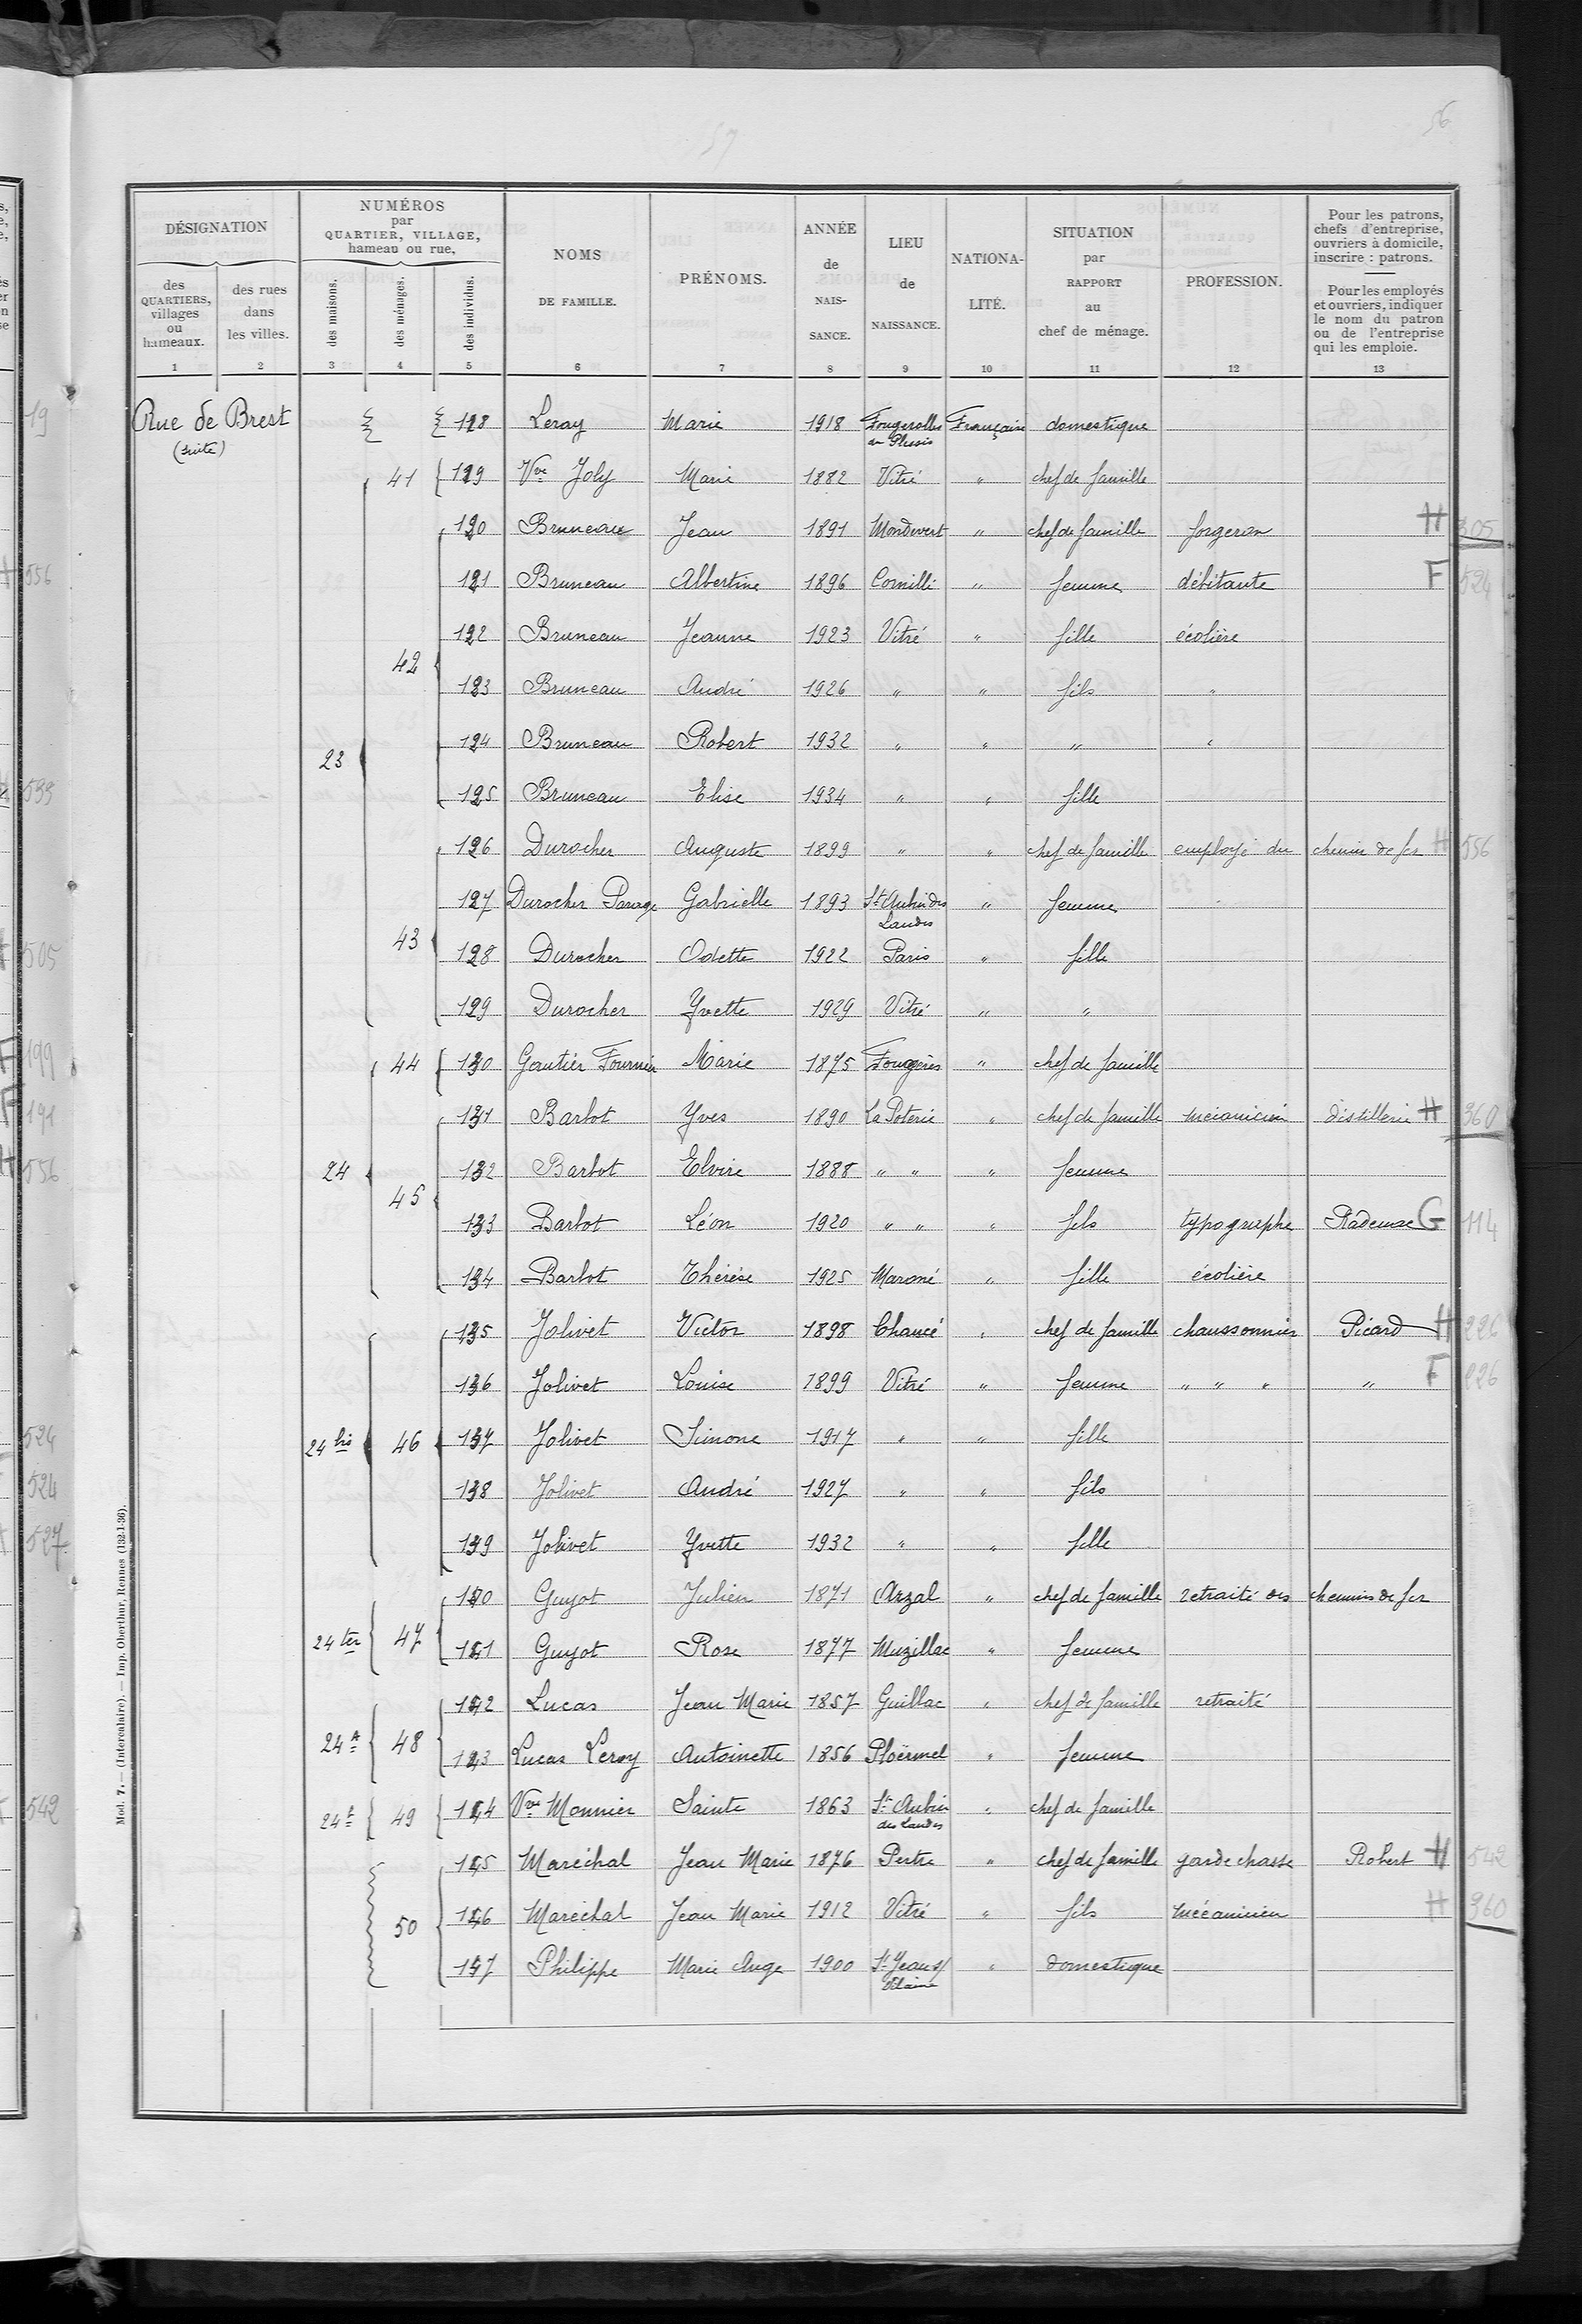 56
57
DÉSIGNATION
NUMÉROS
par
QUARTIER, VILLAGE,
hameau ou rue.
des
QUARTIERS,
villages
ou
hameaux.
des rues
dans
les villes.
des maisons.
des ménages.
des individus.
NOMS
DE FAMILLE.
PRÉNOMS.
ANNÉE
de
NAIS-
SANCE.
LIEU
de
NAISSANCE.
NATIONA-
LITÉ.
SITUATION
par
RAPPORT
au
chef de ménage.
PROFESSION.
Pour les patrons,
chefs d'entreprise,
ouvriers à domicile,
inscrire : patrons.
Pour les employés
et ouvriers, indiquer
le nom du patron
ou de l'entreprise
qui les emploie.
1 2 3 4 5 6 7 8 9 10 11 12 13
Rue de Brest 118 Leray Marie 1918 Fougerolles Française domestique
(suite) du Plessis
41 119 Vve Joly Marie 1882 Vitré " chef de famille
120 Bruneau Jean 1891 Mondevert " chef de famille forgeron H 305
121 Bruneau Albertine 1896 Cornillé " femme débitante F 524
122 Bruneau Jeanne 1923 Vitré " fille écolière
42
123 Bruneau André 1926 " " fils "
124 Bruneau Robert 1932 " " " "
23
125 Bruneau Elise 1934 " " fille
126 Durocher Auguste 1899 " " chef de famille employé du chemin de fer H 556
127 Durocher Parage Gabrielle 1893 St Aubin des " femme
Landes
43
128 Durocher Odette 1922 Paris " fille
129 Durocher Yvette 1929 Vitré " "
44 130 Gautier Fournier Marie 1875 Fougères " chef de famille
131 Barbot Yves 1890 La Poterie " chef de famille mécanicien distillerie H 360
24 132 Barbot Elvire 1888 " " " femme
45
133 Barbot Léon 1920 " " " fils typographe Rademac G 114
134 Barbot Thérèse 1925 Maroné " fille écolière
135 Jolivet Victor 1898 Chancé " chef de famille chaussonnier Picard H 226
136 Jolivet Louise 1899 Vitré " femme " " " " F 226
24 bis 46 137 Jolivet Simone 1917 " " fille
138 Jolivet André 1927 " " fils
139 Jolivet Yvette 1932 " " fille
140 Guyot Julien 1871 Arzal " chef de famille retraité des chemins de fer
24 ter 47 141 Guyot Rose 1877 Muzillac " femme
142 Lucas Jean Marie 1857 Guillac " chef de famille retraité
24 A 48 143 Lucas Leroy Antoinette 1856 Ploërmel " femme
24 49 144 Vve Monnier Sainte 1863 St Aubin " chef de famille
des Landes
145 Maréchal Jean Marie 1876 Pertre " chef de famille garde chasse Robert H 542
50 146 Maréchal Jean Marie 1912 Vitré " fils mécanicien H 360
147 Philippe Marie Ange 1900 St Jean s/ " domestique
Vilaine
Mod. 7. — (Intercalaire). — Imp. Oberthur, Rennes (132-1-36).
19
556
533
505
F 199
F 191
H 556
524
524
527
542